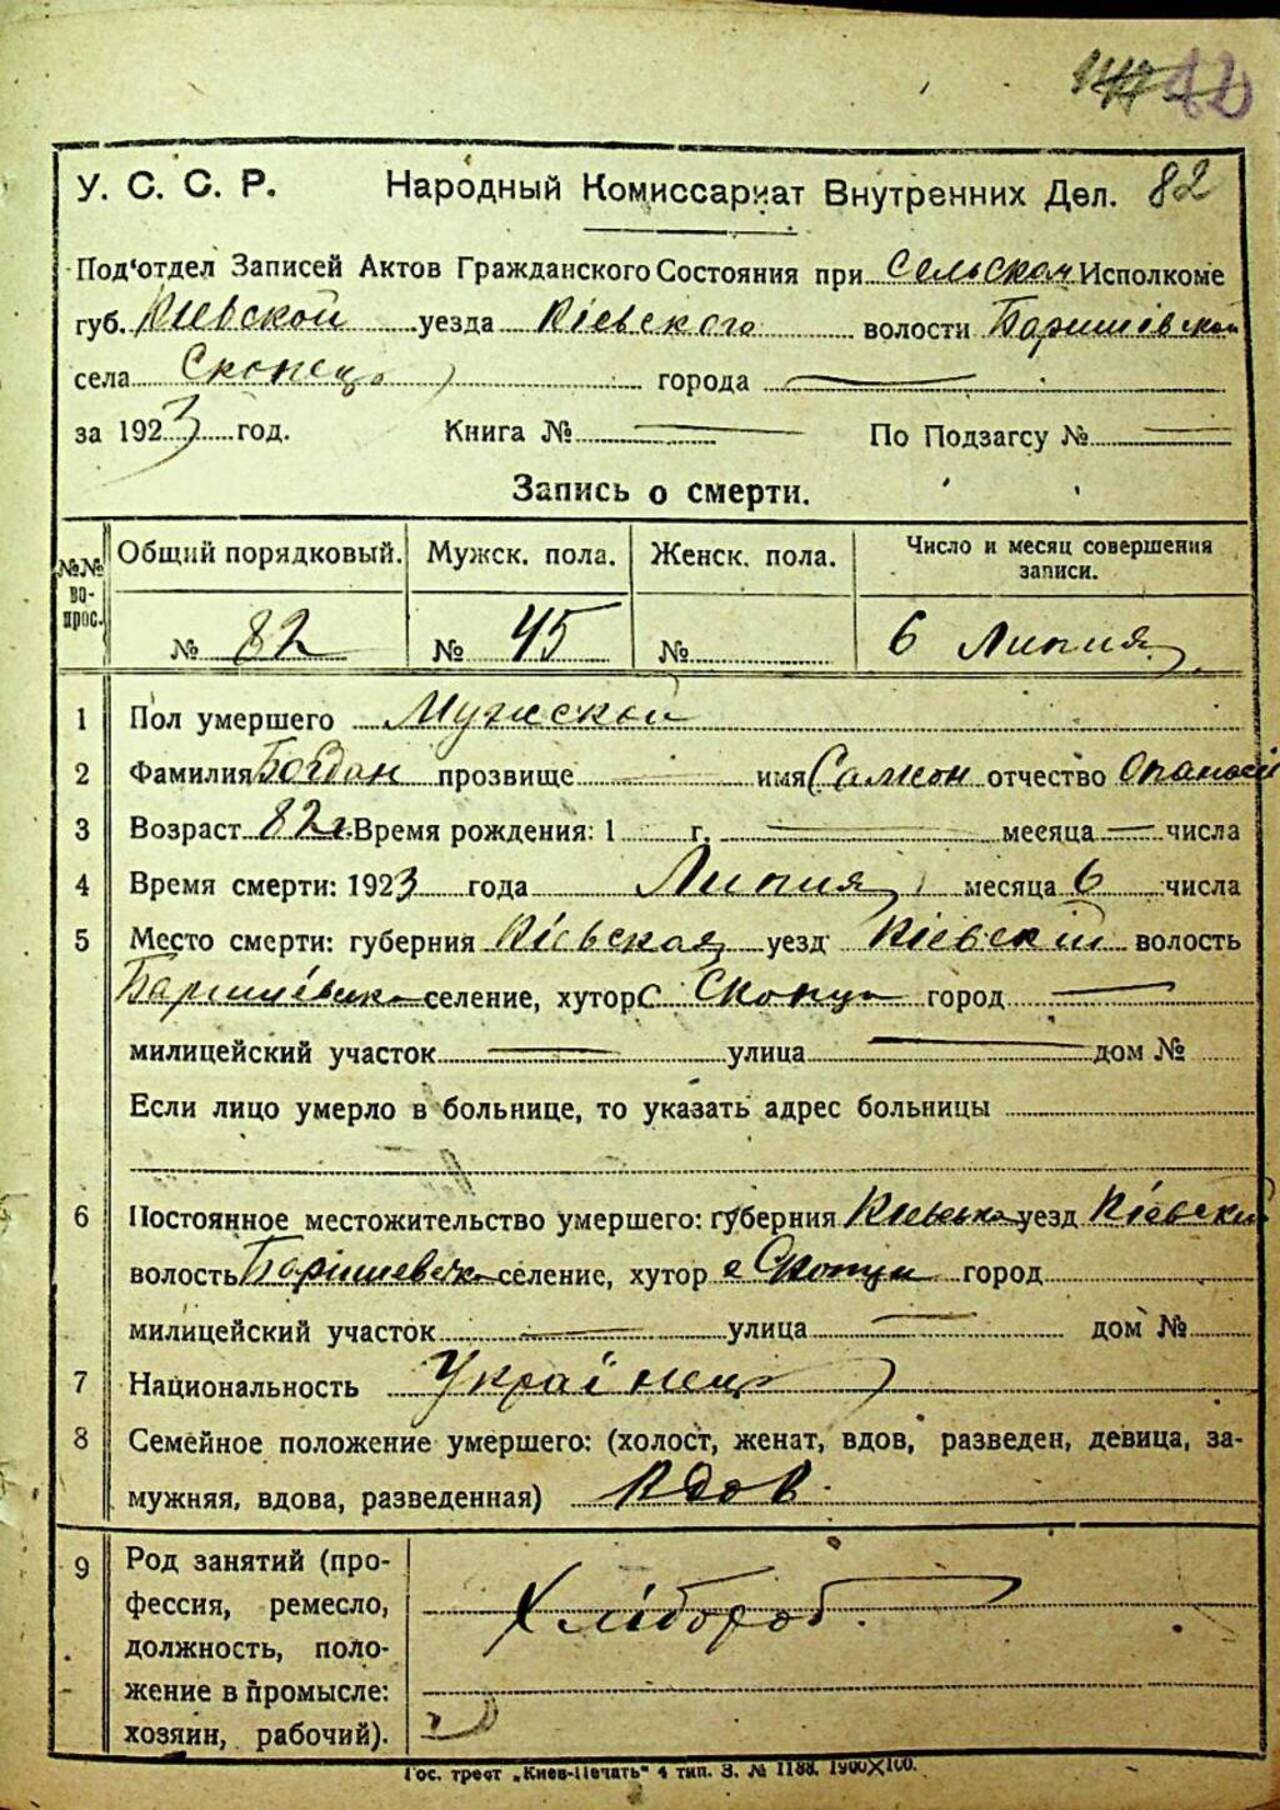 82
У. С. С. Р. Народный Комиссариат Внутренних Дел.
Под'отдел Записей Актов Гражданского Состояния при Сельском Исполкоме
губ. Киевской уезда Кіевского волости Баришівской
села Скопець города —
за 1923 год. Книга № — По Подзагсу № —
Запись о смерти.
№№ вопрос. Общий порядковый. Мужск. пола. Женск. пола. Число и месяц совершения записи.
№ 82 № 45 № 6 Липня
1 Пол умершего Мужской
2 Фамилия Богдан прозвище — имя Самсон отчество
3 Возраст 82 г. Время рождения: 1 г. — месяца — числа
4 Время смерти: 1923 года Липня месяца 6 числа
5 Место смерти: губерния Кіевская уезд Кіевскій волость
Баришівська селение, хутор с Скопци город —
милицейский участок — улица — дом №
Если лицо умерло в больнице, то указать адрес больницы
6 Постоянное местожительство умершего: губерния Киевська уезд Кіевский
волость Баришевська селение, хутор с Скопци город
милицейский участок — улица — дом №
7 Национальность Українец
8 Семейное положение умершего: (холост, женат, вдов, разведен, девица, за-
мужняя, вдова, разведенная) Вдов
9 Род занятий (про-
фессия, ремесло,
должность, поло-
жение в промысле:
хозяин, рабочий).
Хлібороб.
Гос. трест „Киев-Печать" 4 тип. З. № 1188. 1900Х100.